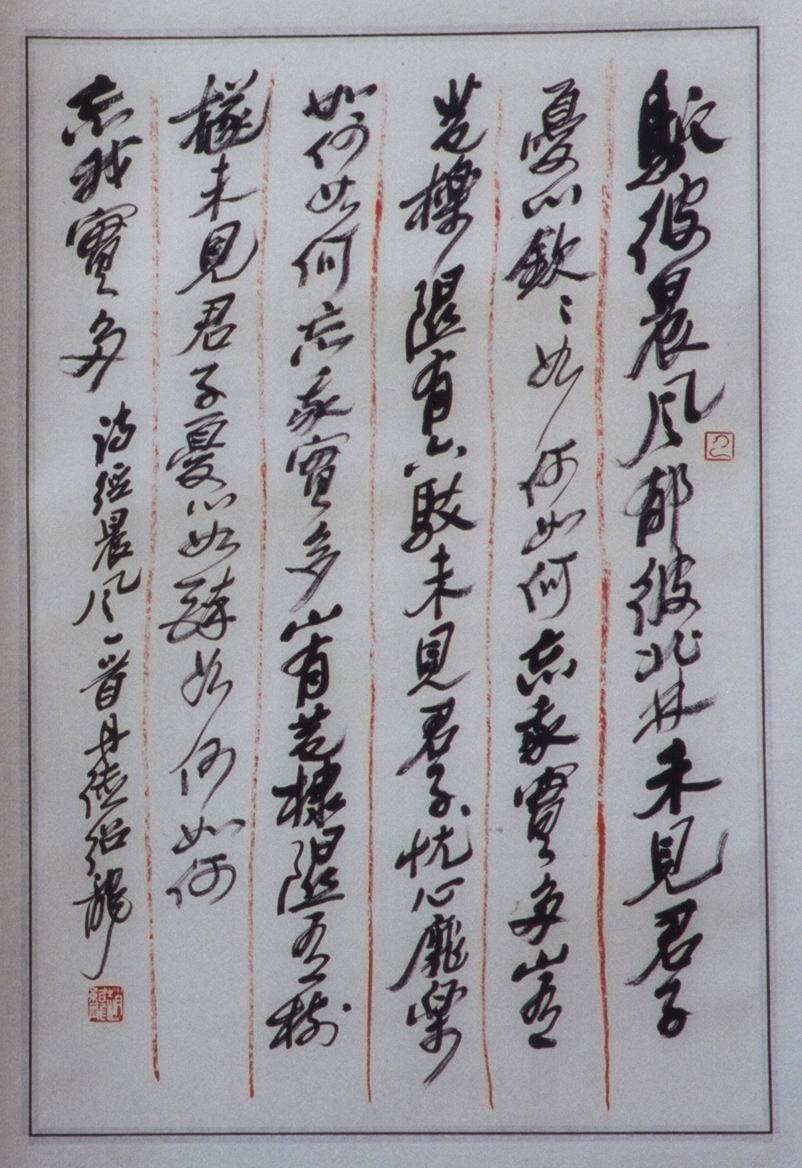 鴥彼晨风郁彼北林未見君子
憂心欽〻如何如何忘我實多山有
苞櫟隰有六駮未見君子忧心靡樂
如何如何忘我實多山有苞棣隰有树
檖未見君子憂心如醉如何如何
忘我實多 诗经晨风一首丹徒绍龍